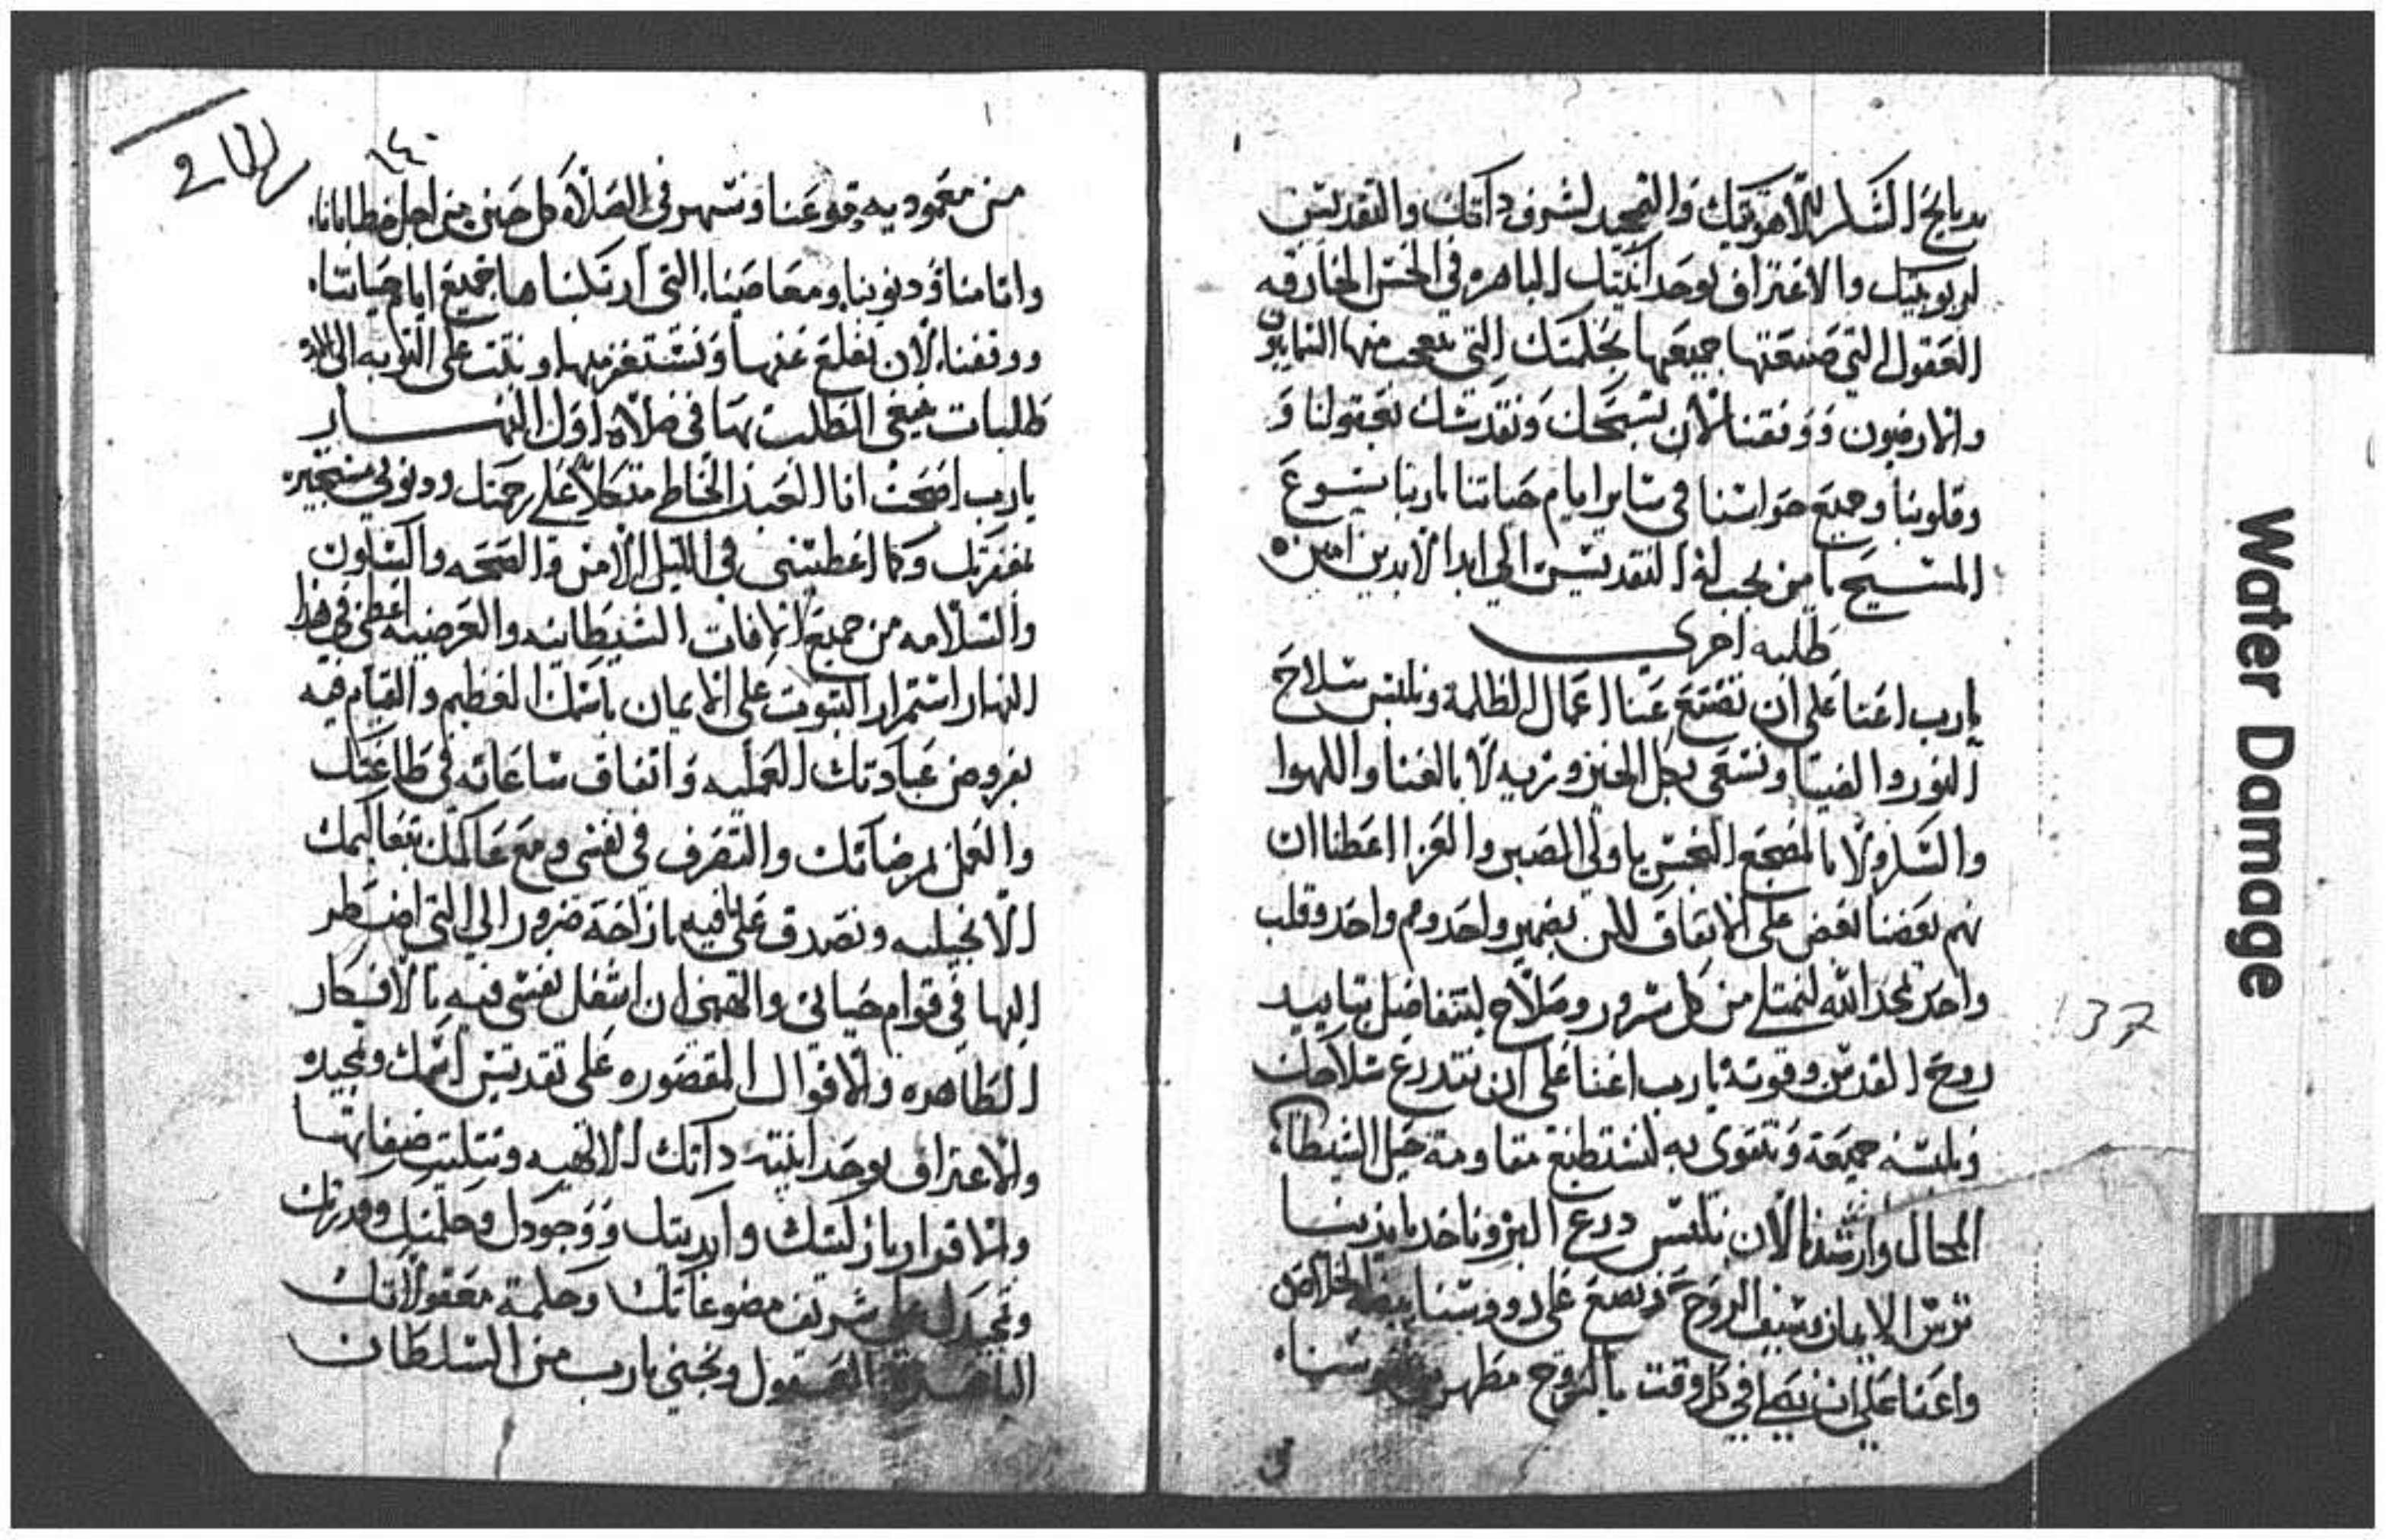 بدبايح الشكر للاهوتيتك والتمجيد لشرف داتك والتقديس
لربوبيتك والاعتراف بوحدانيتك الباهره في الحس الخارقه
العقول التي صنعتها جميعها بحكمتك التي يتعجب منها السمايون
والارضيون ووفقنا لأن نسبحك ونقدسك بعقولنا و
وقلوبنا وجميع حواسنا في ساير ايام حياتنا ياربنا يسوع
المسيح يامن يجب له التقديس الي ابد الابدين امين
طلبه اخرى
يارب اعنا على ان نضع عنا اعمال الظلمة ونلبس سلاح
النور والضيا ونسعى بكل الحين وزيه لا بالغنا واللهوا
والسكر ولا بالمضجع النجس ياولي الصبر والعزا اعطنا ان
نهم بعضنا بعض على الاتفاق لكن بضمير واحد وفم واحد وقلب
واحد نمجد الله لنمتلي من كل سرور وصلاح لنتفاضل بتاييد
روح القدس وقوته يارب اعنا على ان نتدرع سلاحك
ونلبسه جميعه ونتقوى به لنستطيع مقاومة حيل الشيطان
المحال وارشدنا لأن نلبس درع البر وناخد بايدينا
ترس الايمان وسيف الروح ونضع على رووسنا بيضة الخلاص
واعنا على ان نصلي في كل وقت بالروح مطهرين نفوسنا
137
Water Damage
١٤٠
من معموديه دموعنا ونسهر في الصلاه كل حين من اجل خطايانا
واتامنا ودنوبنا ومعاصينا التي ارتكبناها جميع ايام حياتنا
ووفقنا لأن نقلع عنها ونستغفر منها ونتبت على التوبه الى الابد
طلبات ينبغي الطلب بها في صلاة اول النهار
يارب اصبحت انا العبد الخاطي متكلا على رحمتك ودنوبي مستجيره
بمغفرتك وكما اعطيتني في الليل الامن والصحه والسكون
والسلامه من جميع الافات الشيطانيه والعرضيه اعطني في هذا
النهار استمرار التبوت على الايمان باسمك العظيم والقيام فيه
بفروض عبادتك العمليه وانفاق ساعاته في طاعتك
والعمل بمرضاتك والتصرف في نفسي ومع عالمك بتعاليمك
الانجيليه وتصدق علي فيه بازاحة ضرورتي التي اضطر
اليها في قوام حياتي والهمني ان اشغل نفسي فيه بالافكار
الطاهره والاقوال المقصوره على تقديس اسمك وتمجيده
والاعتراف بوحدانية داتك الالهيه وتتليت صفاتها
والاقرار بازليتك وابديتك ووجودك وحكمتك وقدرتك
وتمجيدك على شريف مصنوعاتك وحكمة معقولاتك
الباهرة العقول ونجني يارب من السلطان